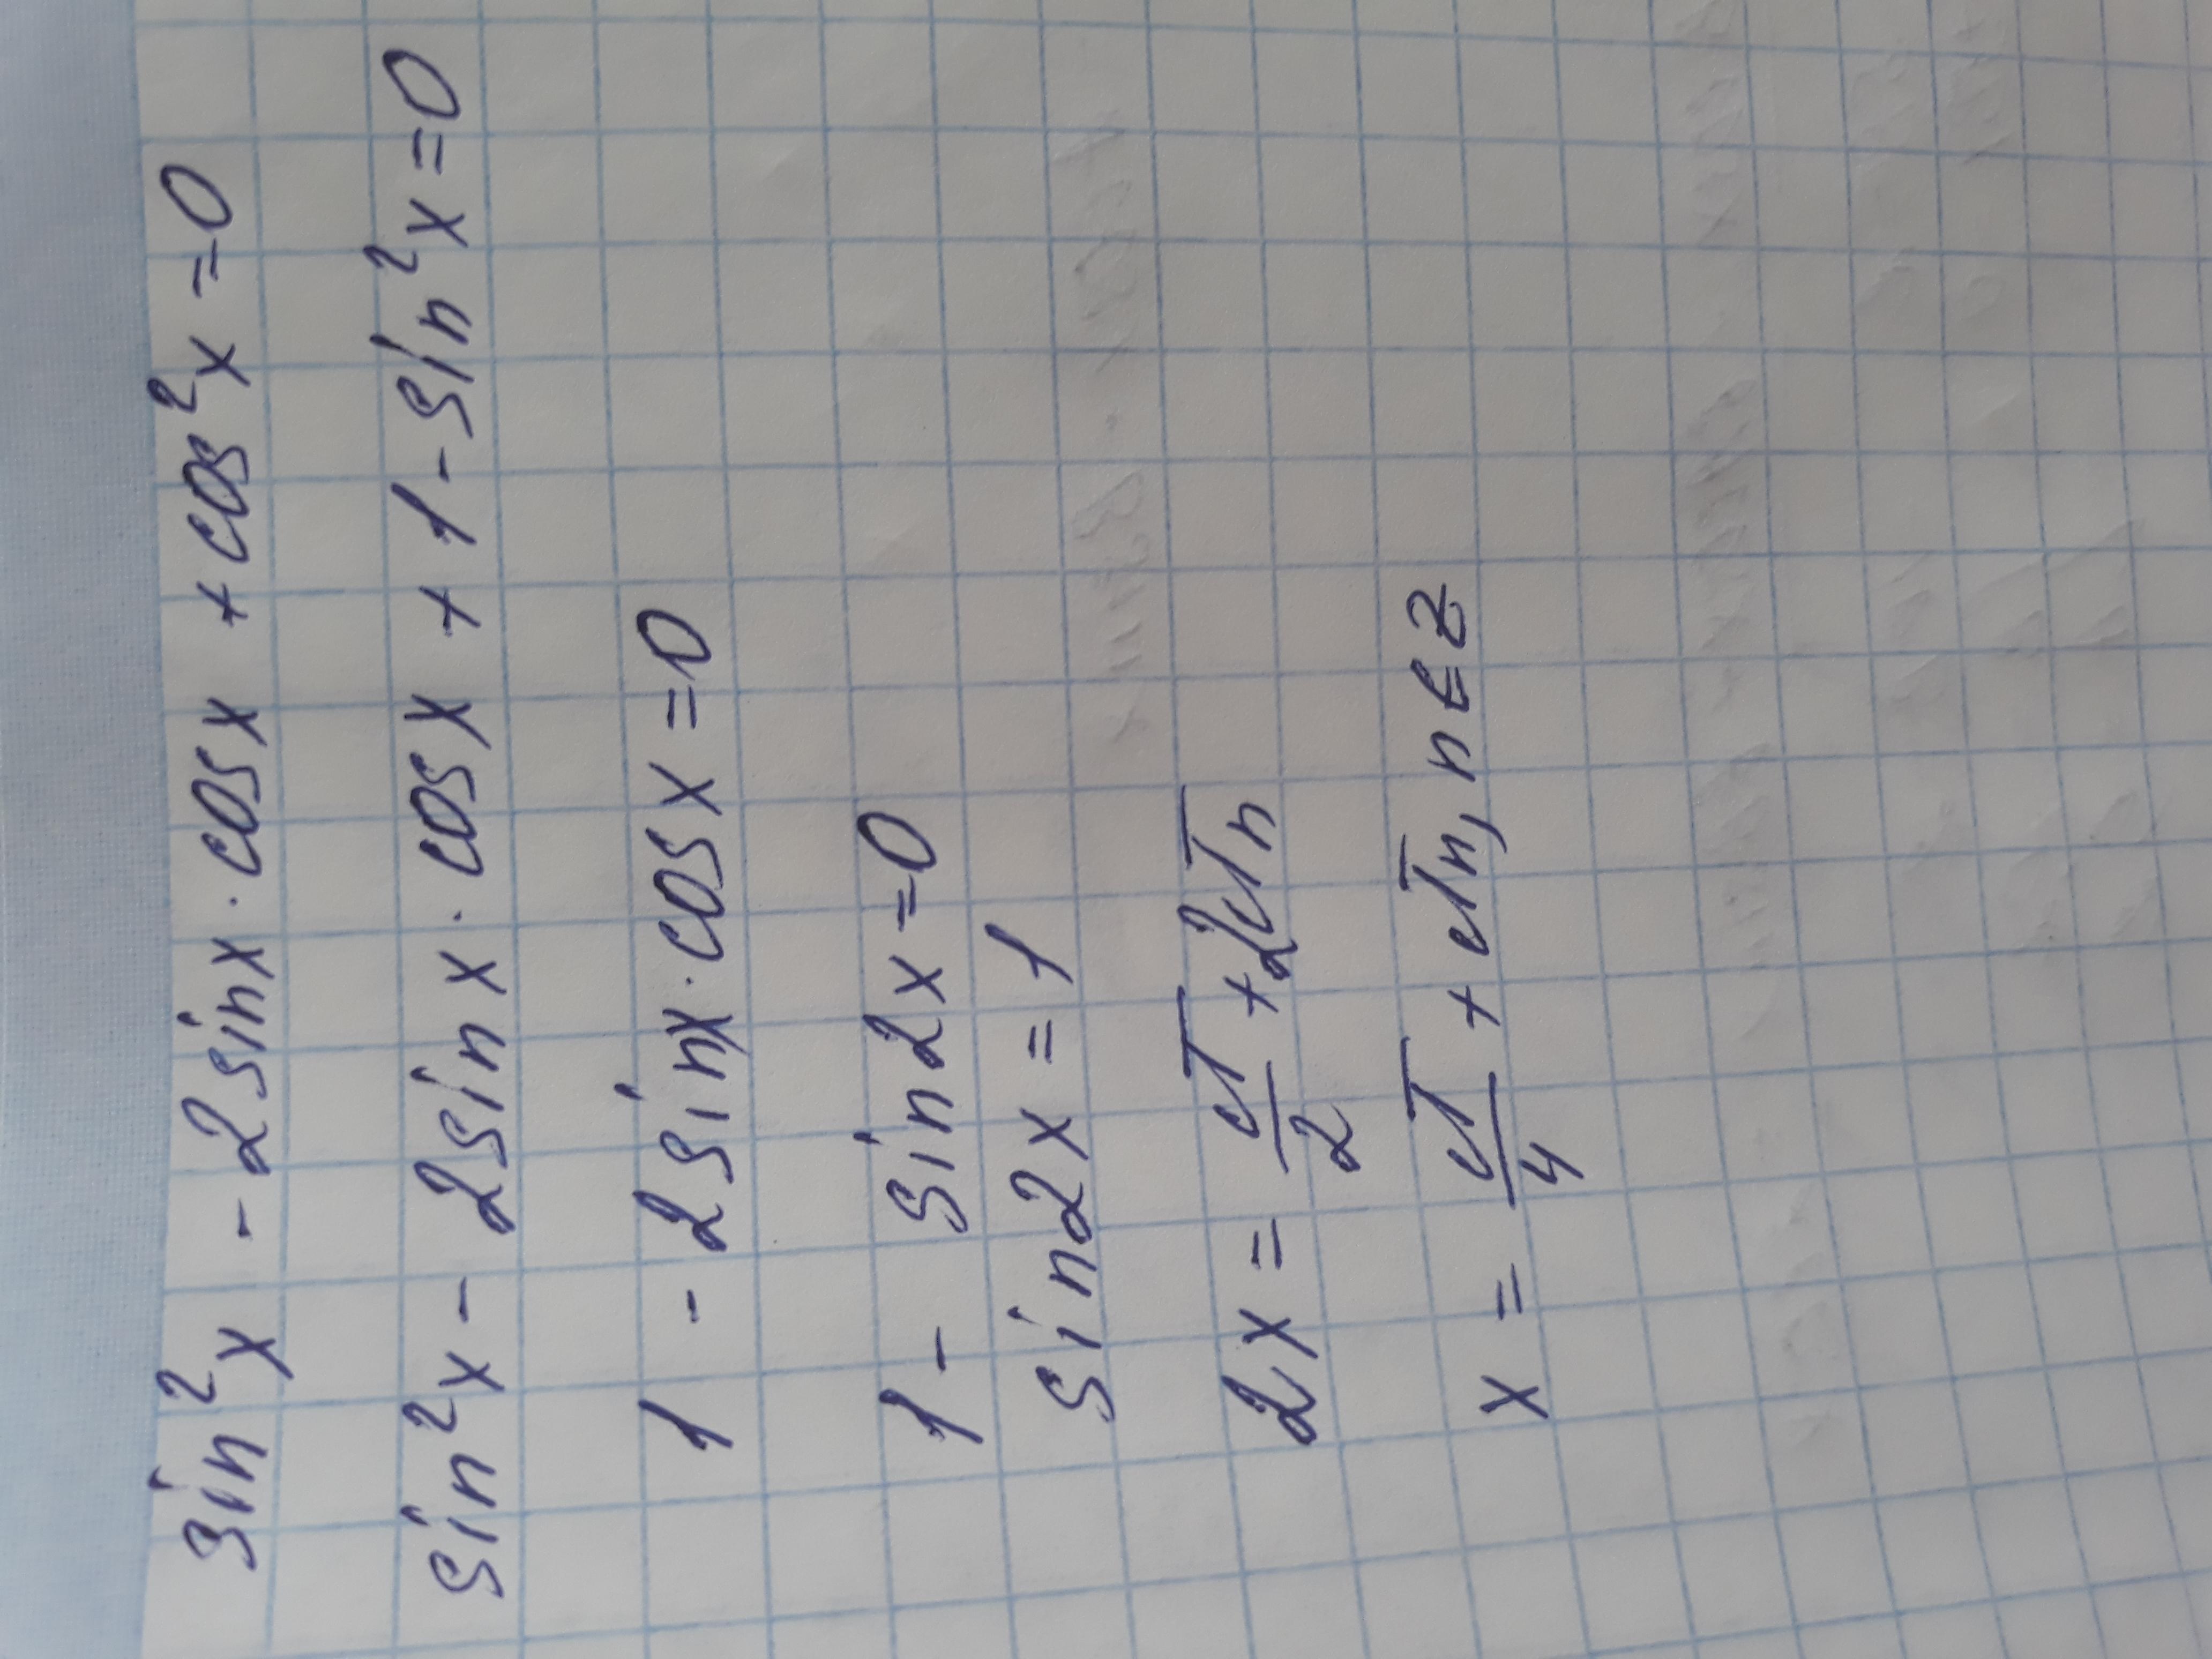 sin²x - 2sinx · cosx + cos²x = 0
sin²x - 2sinx · cosx + 1 - sin²x = 0
1 - 2sinx · cosx = 0
1 - sin2x = 0
sin2x = 1
2x = π/2 + 2πn
x = π/4 + πn, n ∈ Z